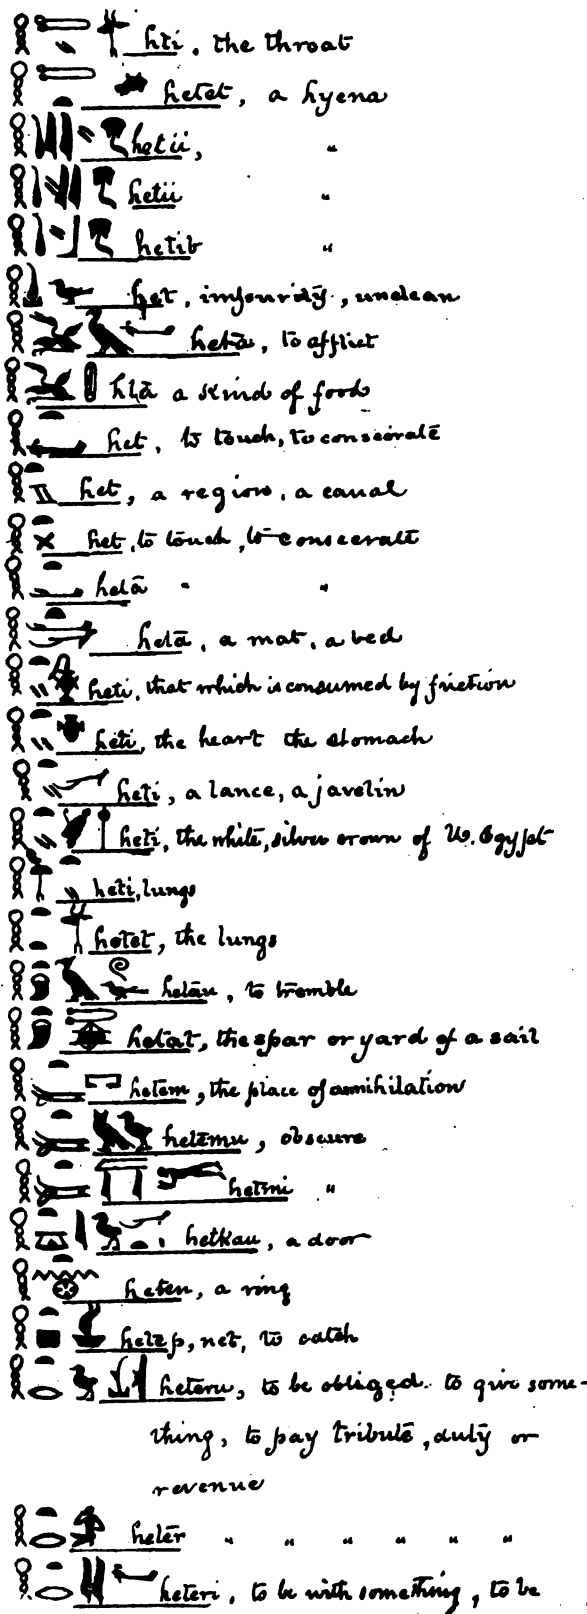 hti, the throat
hetet, a hyena
hetii, "
hetii "
hetib "
het, impurity, unclean
hetā, to afflict
htā a kind of food
het, to touch, to consecrate
het, a region, a canal
het, to touch, to consecrate
hetā " "
hetā, a mat, a bed
heti, that which is consumed by friction
heti, the heart the stomach
heti, a lance, a javelin
heti, the white, silver crown of U. Egypt
heti, lungs
hetet, the lungs
hetāu, to tremble
hetat, the spar or yard of a sail
hetem, the place of annihilation
hetemu, obscure
hetmi "
hetkau, a door
heten, a ring
hetep, net, to catch
heteru, to be obliged. to give some-
thing, to pay tribute, duty or
revenue
heter " " " " " "
heteri, to be with something, to be